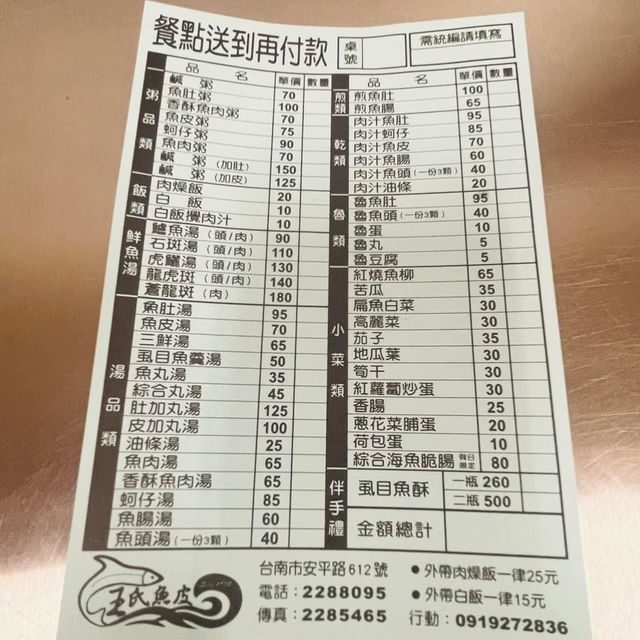 餐點送到再付款
桌號
需統編請填寫
品 名 單價 數量
粥品類
鹹粥 70
魚肚粥 100
香酥魚肉粥 70
魚皮粥 75
蚵仔粥 90
魚肉粥 70
鹹 粥 (加肚) 150
鹹 粥 (加皮) 125
飯類
肉燥飯 20
白 飯 10
白飯攪肉汁 10
鮮魚湯
鱸魚湯 (頭/肉) 90
石斑湯 (頭/肉) 110
虎鱺湯 (頭/肉) 130
龍虎斑 (頭/肉) 140
蒼龍斑 (肉) 180
湯品類
魚肚湯 95
魚皮湯 70
三鮮湯 65
虱目魚羹湯 50
魚丸湯 35
綜合丸湯 45
肚加丸湯 125
皮加丸湯 100
油條湯 25
魚肉湯 65
香酥魚肉湯 65
蚵仔湯 85
魚腸湯 60
魚頭湯 (一份3顆) 40
品 名 單價 數量
煎類
煎魚肚 100
煎魚腸 65
乾類
肉汁魚肚 95
肉汁蚵仔 85
肉汁魚皮 70
肉汁魚腸 60
肉汁魚頭 (一份3顆) 40
肉汁油條 20
魯類
魯魚肚 95
魯魚頭 (一份3顆) 40
魯蛋 10
魯丸 5
魯豆腐 5
小菜類
紅燒魚柳 65
苦瓜 35
扁魚白菜 30
高麗菜 30
茄子 35
地瓜葉 30
筍干 30
紅蘿蔔炒蛋 30
香腸 25
蔥花菜脯蛋 20
荷包蛋 10
綜合海魚脆腸 假日限定 80
伴手禮
虱目魚酥 一瓶 260
二瓶 500
金額總計
王氏魚皮
台南市安平路612號
電話:2288095
傳真:2285465
●外帶肉燥飯一律25元
●外帶白飯一律15元
行動:0919272836